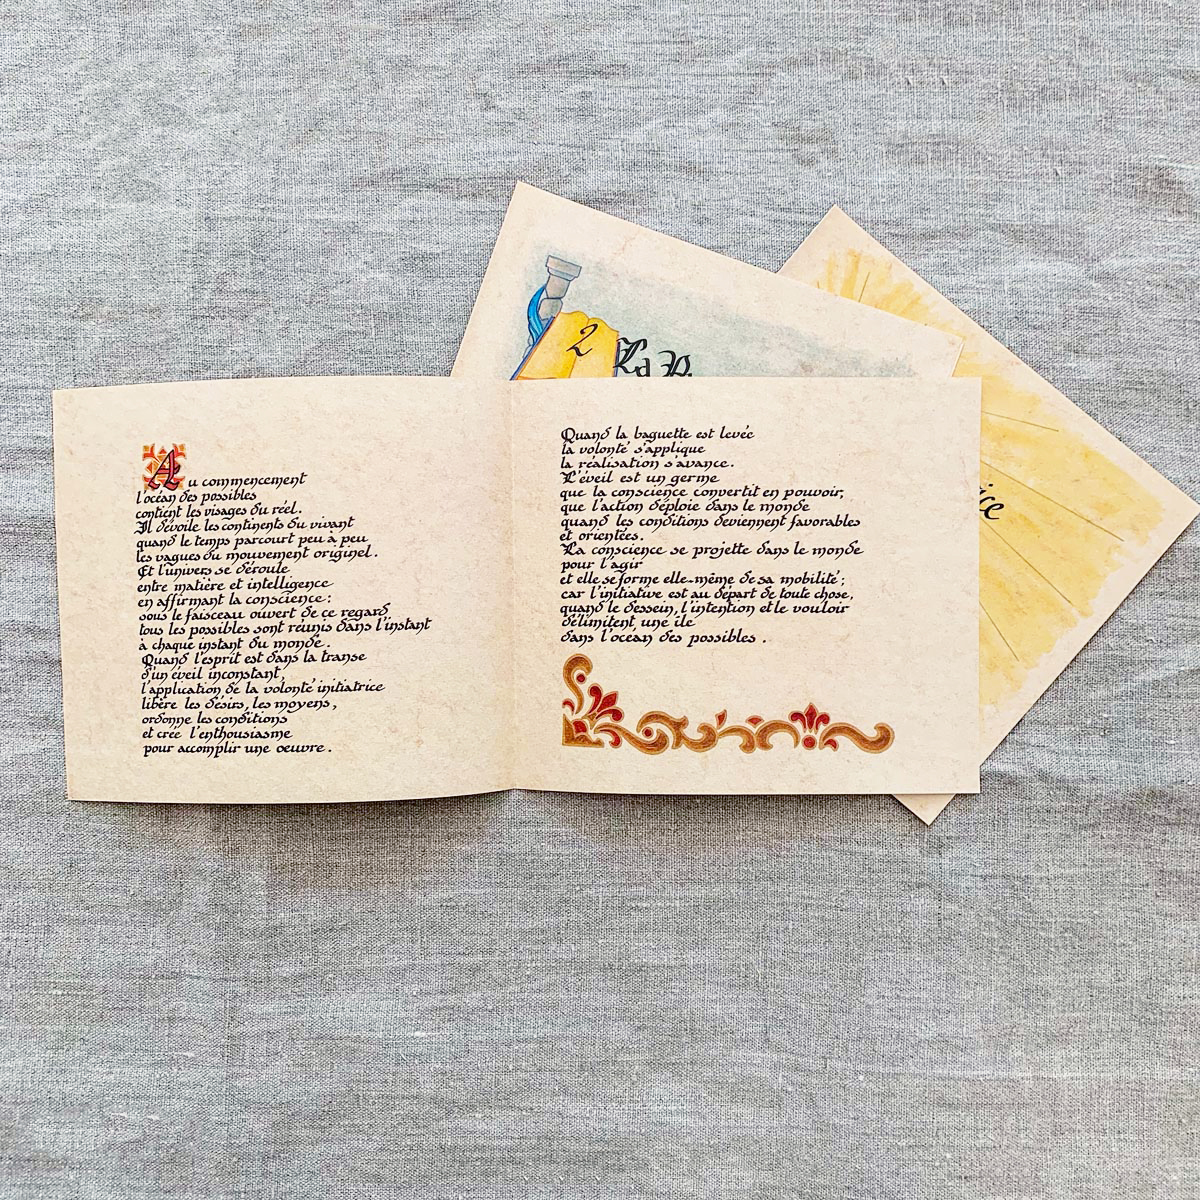 Au commencement
l'océan des possibles
contient les visages du réel.
Il dévoile les continents du vivant
quand le temps parcourt peu à peu
les vagues du mouvement originel.
Et l'univers se déroule
entre matière et intelligence
en affirmant la conscience :
sous le faisceau ouvert de ce regard
tous les possibles sont réunis dans l'instant
à chaque instant du monde.
Quand l'esprit est dans la transe
d'un éveil inconstant,
l'application de la volonté initiatrice
libère les désirs, les moyens,
ordonne les conditions
et crée l'enthousiasme
pour accomplir une œuvre.
Quand la baguette est levée
la volonté s'applique
la réalisation s'avance.
L'éveil est un germe
que la conscience convertit en pouvoir,
que l'action déploie dans le monde
quand les conditions deviennent favorables
et orientées.
La conscience se projette dans le monde
pour l'agir
et elle se forme elle-même de sa mobilité ;
car l'initiative est au départ de toute chose,
quand le dessein, l'intention et le vouloir
délimitent une île
dans l'océan des possibles.
2 La P
ice